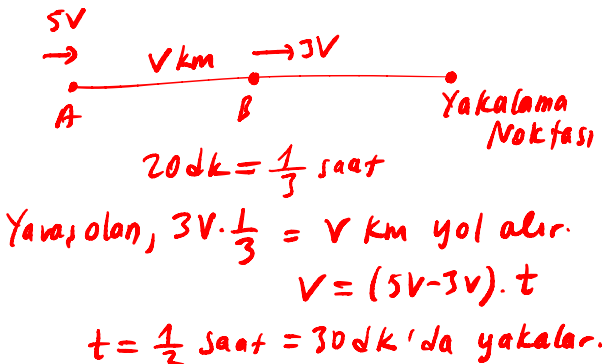 5V
V km → 3V
A B Yakalama
Noktası
20dk = 1/3 saat
Yavaş olan, 3V · 1/3 = V km yol alır.
V = (5V-3V) · t
t = 1/2 saat = 30dk'da yakalar.